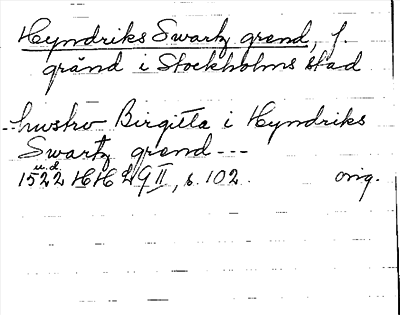 Hyndriks Swartz grend, f.
gränd i Stockholms stad
hustro Birgitta i Hyndriks
Swartz grend ---
u.d.
1522 HH 29 II, s. 102. orig.